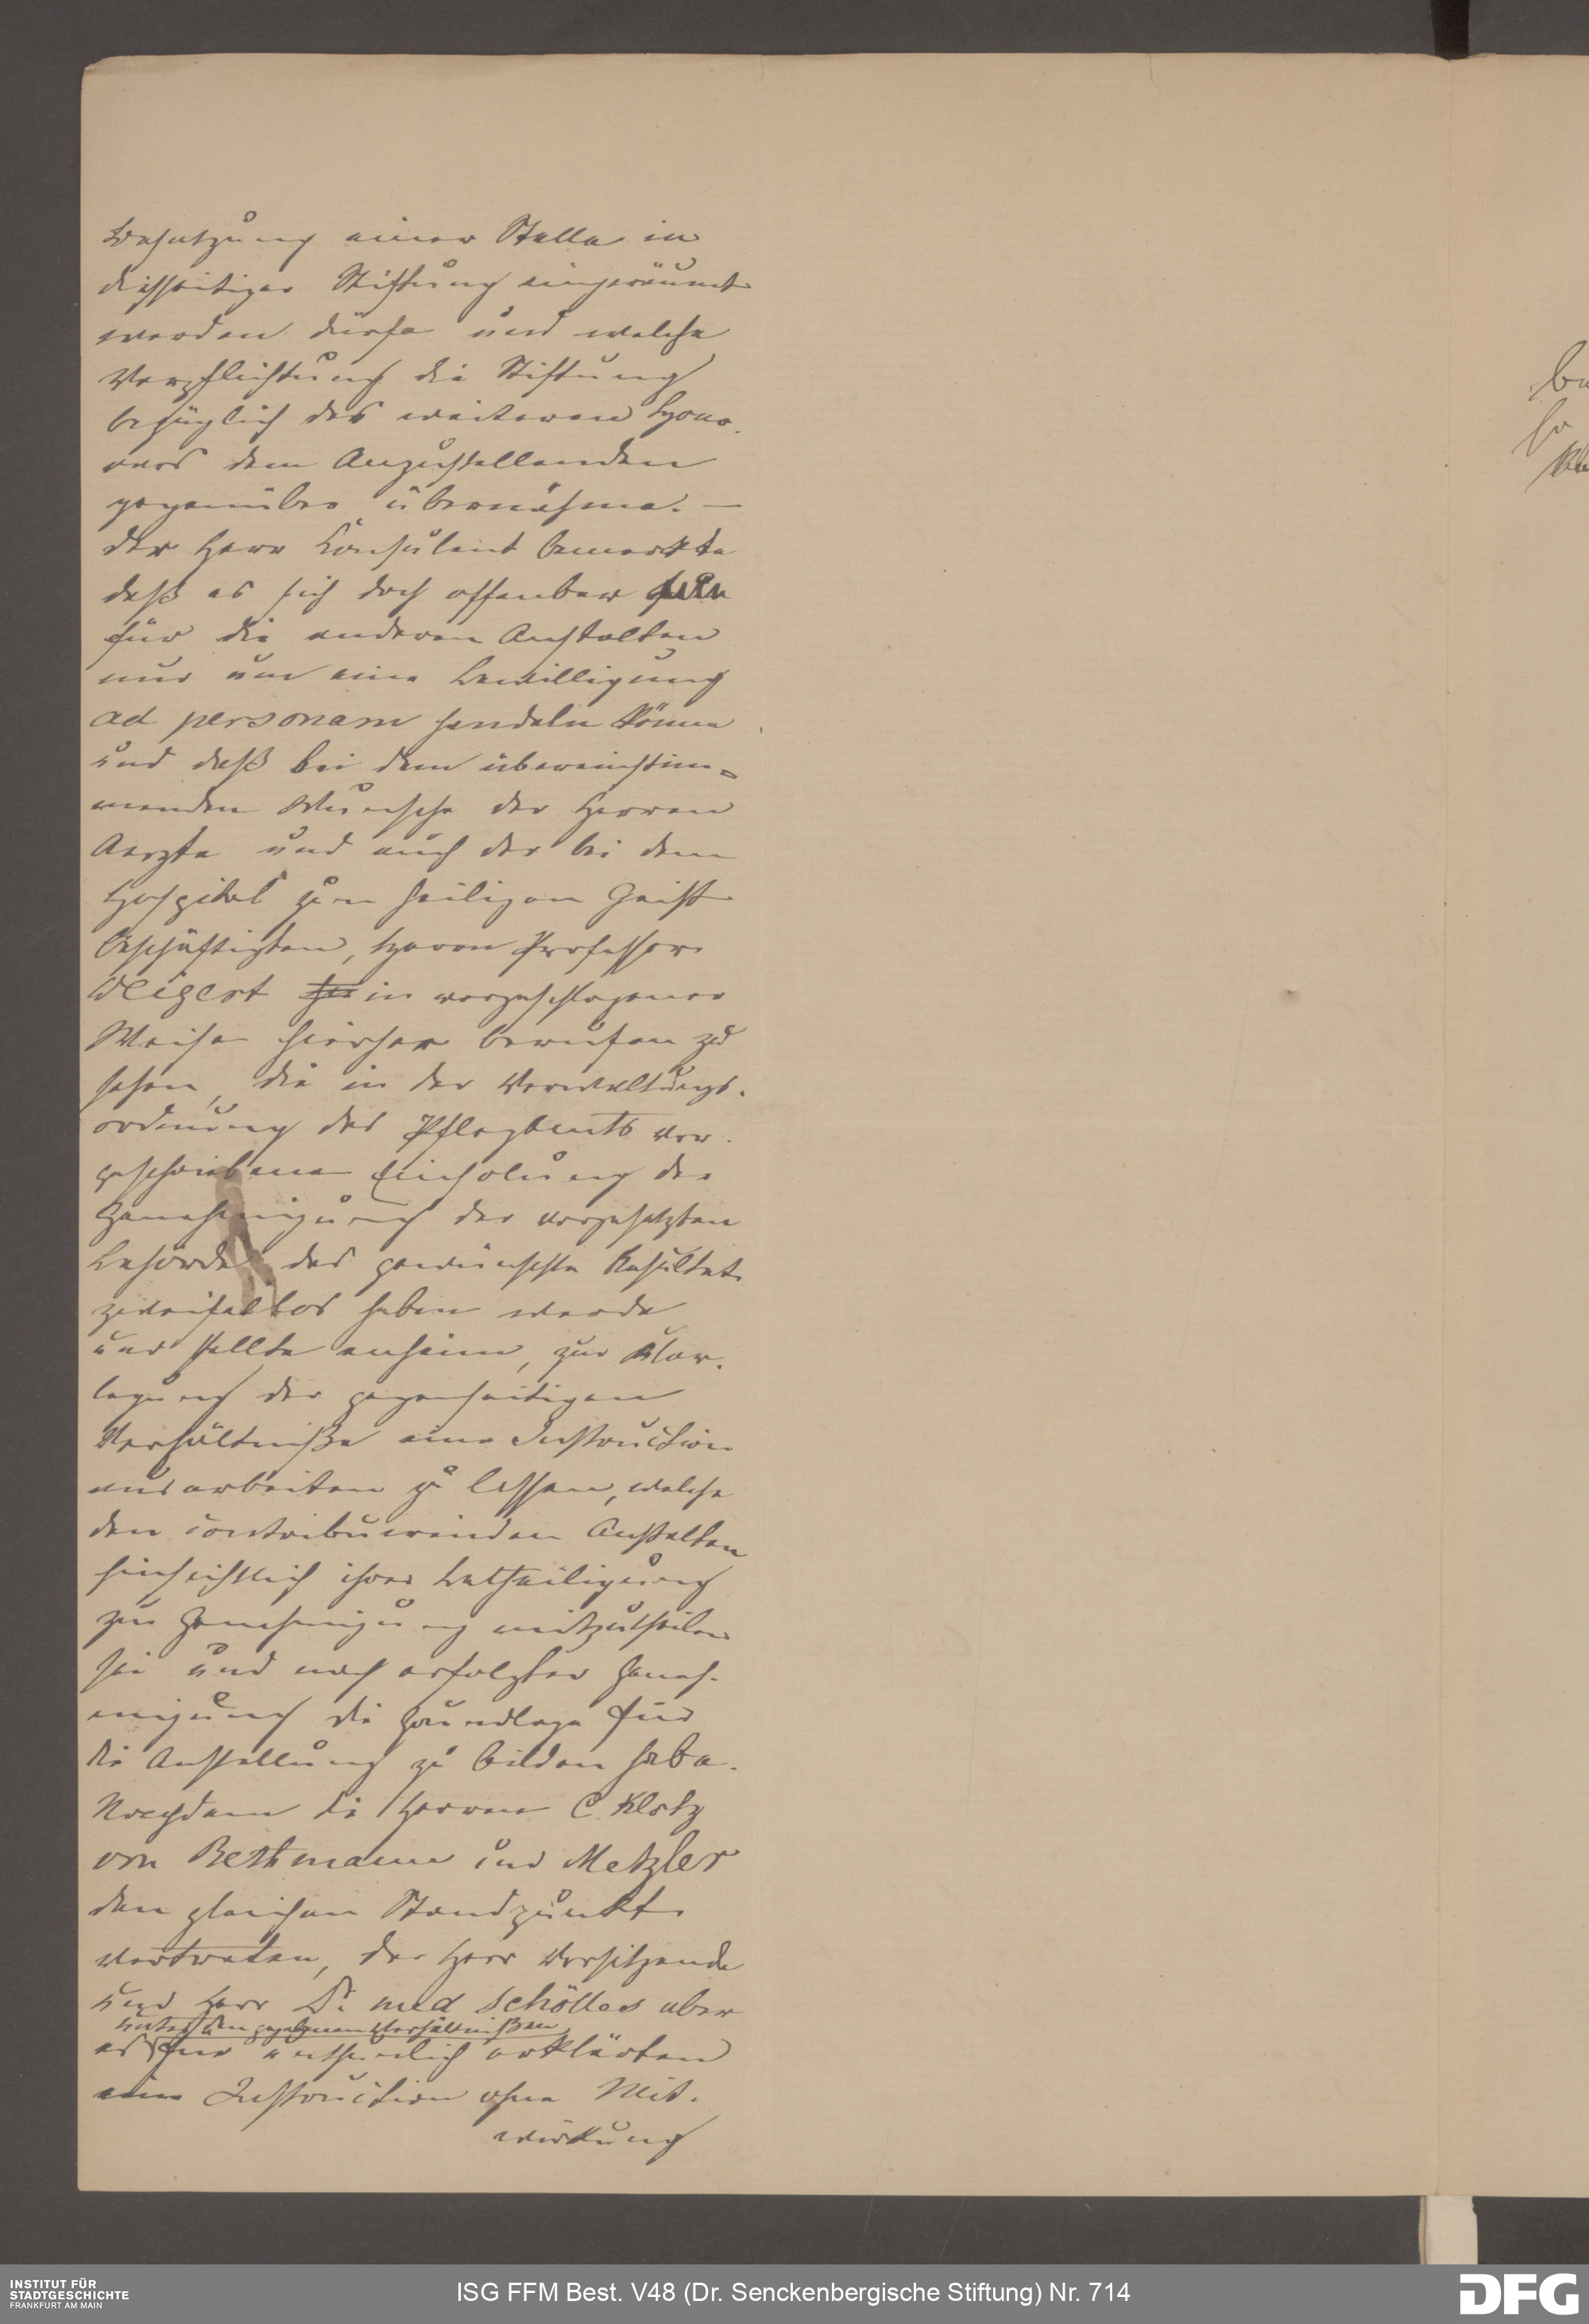 Besetzung einer Stelle in
diesseitiger Stiftung eingeräumt
werden dürfe und welche
Verpflichtung die Stiftung
bezüglich des weiteren Hono-
rars dem Anzustellenden
gegenüber übernähme. —
Der Herr Consulent bemerkte
daß es sich doch offenbar
für die anderen Anstalten
nur um eine Bewilligung
ad personam handeln könne
und daß bei dem übereinstim-
menden Wunsche der Herren
Aerzte und auch der bei dem
Hospital zum heiligen Geist
beschäftigten, Herrn Professor
Weigert in vorgeschlagener
Weise hierher berufen zu
sehen, die in der Verwaltungs-
ordnung des Pflegamts vor-
geschriebene Einholung der
Genehmigung der vorgesetzten
Behörde das gewünschte Resultat
zweifellos haben werde
und stellte anheim, zur Klar-
legung der gegenseitigen
Verhältniße eine Instruction
ausarbeiten zu lassen, welche
den contribuirenden Anstalten
hinsichtlich ihrer Betheiligung
zur Genehmigung mitzutheilen
sei und nach erfolgter Geneh-
migung die Grundlage für
die Anstellung zu bilden habe.
Nachdem die Herren C. Klotz
von Bethmann und Metzler
den gleichen Standpunkt
vertreten, der Herr Vorsitzende
und Herr Dr. med Schölles aber
unter den gegebenen Verhältnißen
es für unthunlich erklärten
eine Instruction ohne Mit-
wirkung
INSTITUT FÜR
STADTGESCHICHTE
FRANKFURT AM MAIN
ISG FFM Best. V48 (Dr. Senckenbergische Stiftung) Nr. 714
DFG